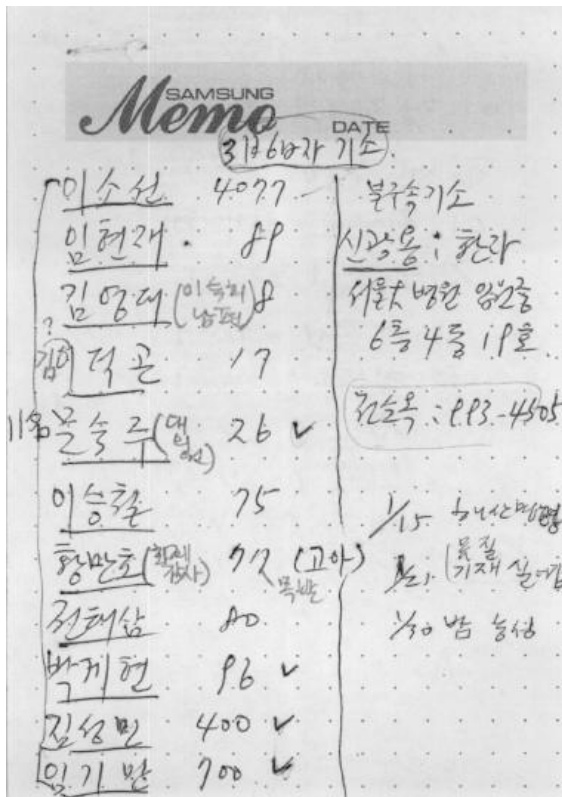 SAMSUNG
Memo
DATE
3月6日자 기소
이소선 4077
임현재 89
김영대 (이숙희 남편) 8
? 김 덕곤 17
11名 문숙주 (대의원) 26 ✓
이승철 75
황만호 (회계감사) 77 (고아)
목발
전태삼 80
박계현 96 ✓
김성민 400 ✓
임기만 700 ✓
불구속기소
신광용: 환자
서울大 병원 입원중
6층 4동 19호
전순옥: 993-4505
1/15 해산명령
1/21 (물질 기재 실어감
1/30 밤 농성